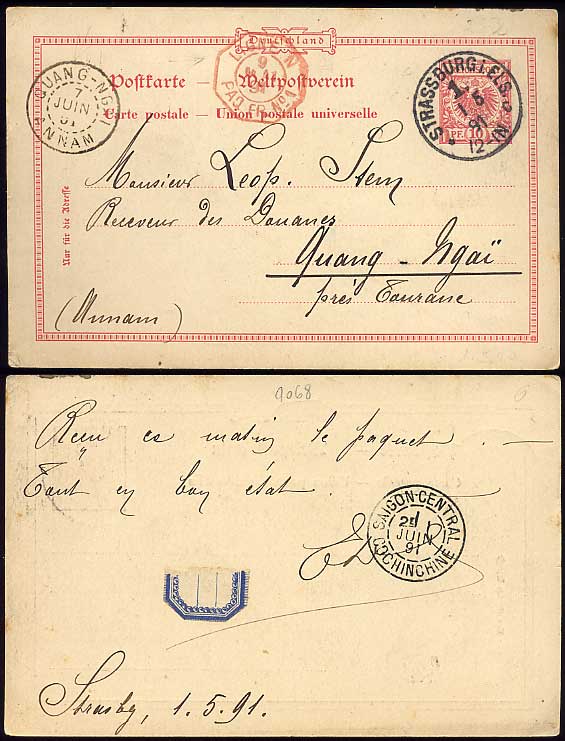 Deutschland
LIGNE N
9
JUIN
91
PAQ. FR. No 4
QUANG-NGAI
7
JUIN
91
ANNAM
Postkarte – Weltpostverein
Carte postale – Union postale universelle
STRASSBURG i. ELS.
1
1 5
91
12-1N
PF. 10
Nur für die Adresse
Monsieur Leop. Stem
Receveur des Douanes
Quang - Ngaï
près Tourane
(Annam)
9068
Reçu ce matin le paquet. —
Tout en bon état.
SAIGON-CENTRAL
25
JUIN
91
COCHINCHINE
Strasbg, 1.5.91.